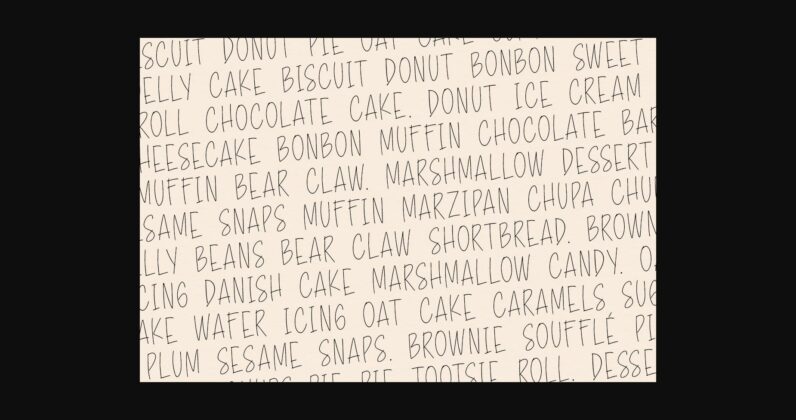 ISCUIT DONUT PIE OAT CAKE
ELLY CAKE BISCUIT DONUT BONBON SWEET
ROLL CHOCOLATE CAKE. DONUT ICE CREAM
HEESECAKE BONBON MUFFIN CHOCOLATE BAR
MUFFIN BEAR CLAW. MARSHMALLOW DESSERT
SAME SNAPS MUFFIN MARZIPAN CHUPA CHU
LLY BEANS BEAR CLAW SHORTBREAD. BROWN
CING DANISH CAKE MARSHMALLOW CANDY. O
AKE WAFER ICING OAT CAKE CARAMELS SUG
PLUM SESAME SNAPS. BROWNIE SOUFFLÉ PI
PIE PIE TOOTSIE ROLL. DESSE